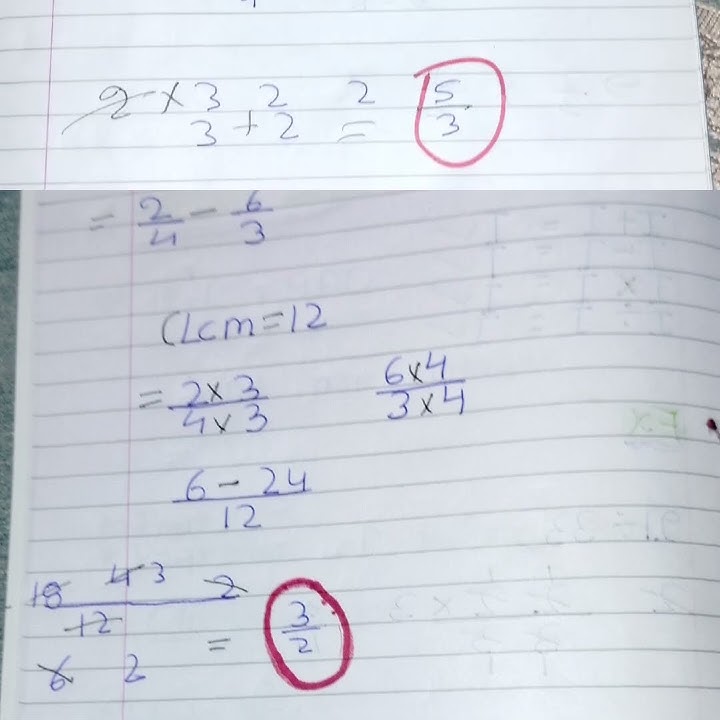 2 × 3 2 2 5/3
3 + 2 =
= 2/4 - 6/3
(Lcm = 12
= 2×3/4×3 6×4/3×4
6 - 24/12
18 4 3 2
12
6 2 = 3/2